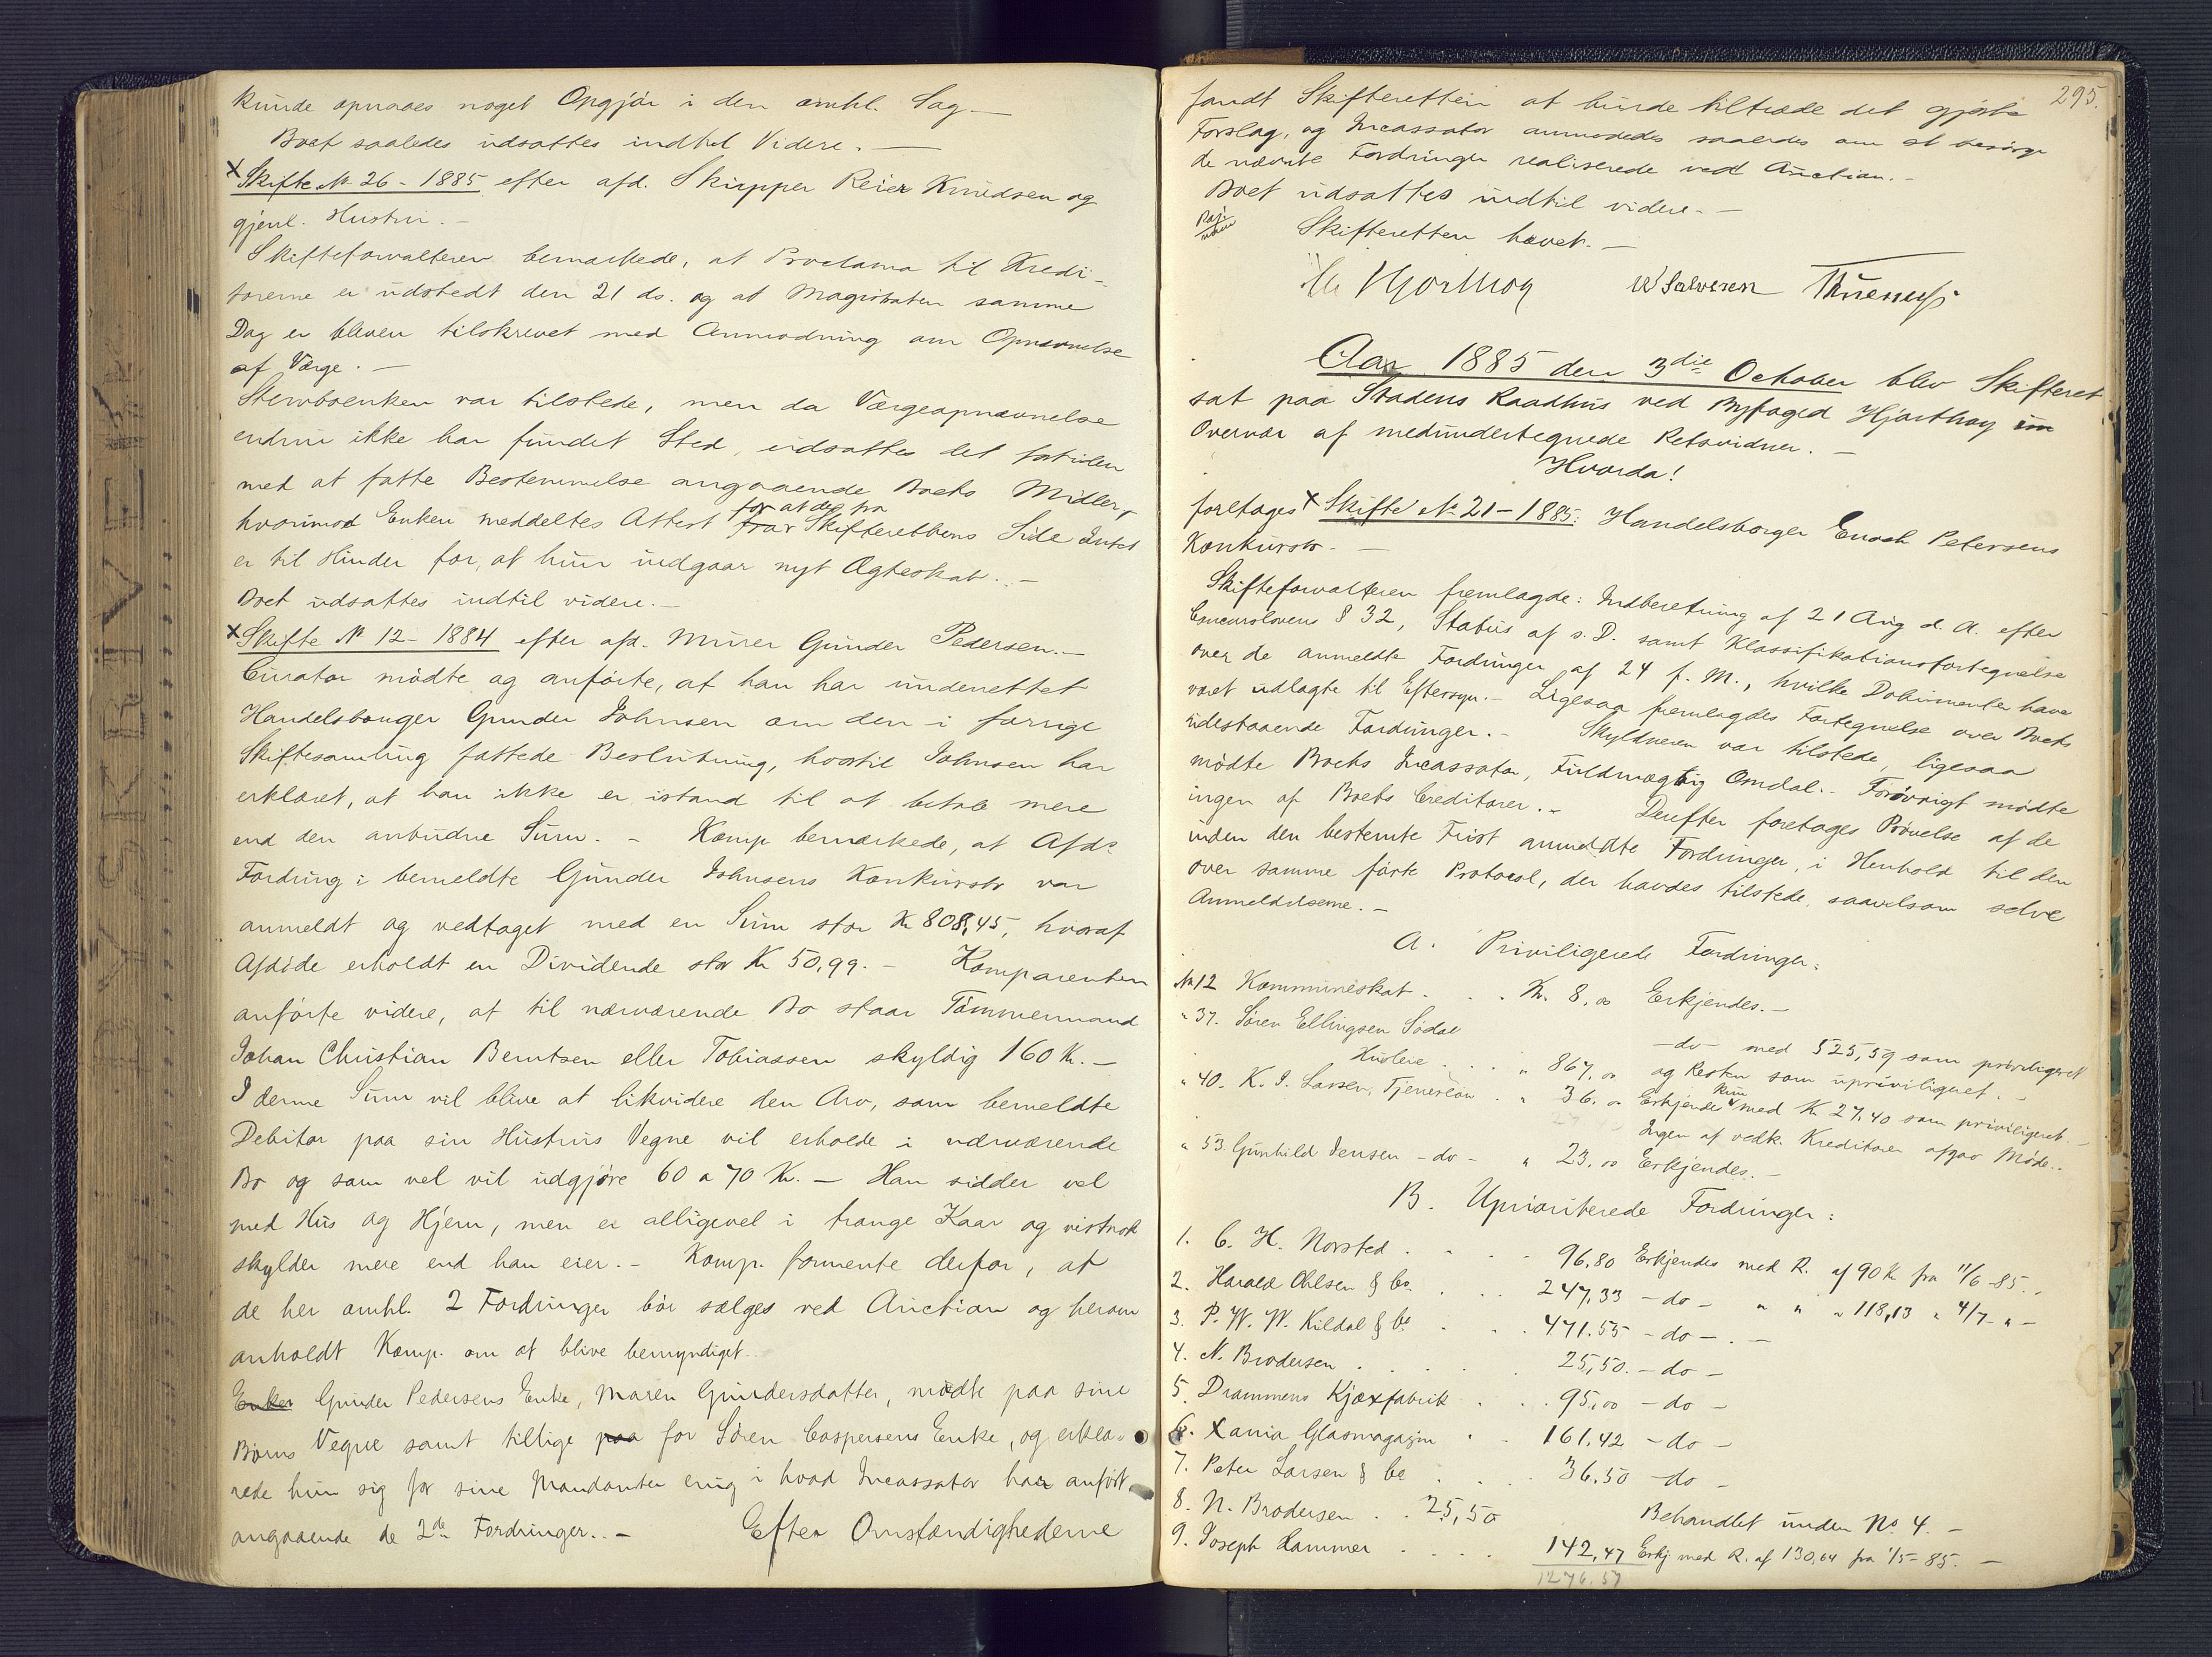 kunde opnaaes noget Opgjør i den omhl. Sag.—
Boet saaledes udsattes indtil Videre.—
x Skifte No 26 - 1885 efter afd. Skipper Reier Knudsen og
gjenl. Hustru.—
Skifteforvalteren bemærkede, at Proclama til Kredi-
torerne er udstedt den 21 ds. og at Magistraten samme
Dag er bleven tilskrevet med Anmodning om Opnævnelse
af Værge.—
Stervboenken var tilstede, men da Værgeopnævnelse
endnu ikke har fundet Sted, udsattes det fortiden
med at fatte Bestemmelse angaaende Boets Midler,
hvorimod Enken meddeltes Attest for at der fra Skifterettens Side Intet
er til Hinder for, at hun indgaar nyt Ægteskab.—
Boet udsattes indtil videre.—
x Skifte No 12 - 1884 efter afd. Murer Gunder Pedersen.—
Curator mødte og anførte, at han har underrettet
Handelsborger Gunder Johnsen om den i forrige
Skiftesamling fattede Beslutning, hvortil Johnsen har
erklæret, at han ikke er istand til at betale mere
end den anbudne Sum. - Komp bemærkede, at Afds
Fordring i bemeldte Gunder Johnsens Konkursbo var
anmeldt og vedtaget med en Sum stor Kr 808,45, hvoraf
Afdøde erholdt en Dividende stor Kr 50,99. - Komparenten
anførte videre, at til nærværende Bo staar Tømmermand
Johan Christian Berntsen eller Tobiassen skyldig 160 Kr.—
I denne Sum vil blive at likvidere den Arv, som bemeldte
Debitor paa sin Hustrus Vegne vil erholde i nærværende
Bo og som vel vil udgjøre 60 a 70 Kr. — Han sidder vel
med Hus og Hjem, men er alligevel i trange Kaar og vistnok
skylder mere end han eier. - Komp. formente derfor, at
de her omhl. 2 Fordringer bør sælges ved Auction og herom
anholdt Komp. om at blive bemyndiget.
Enken Gunder Pedersens Enke, Maren Gundersdatter, mødte paa sine
Børns Vegne samt tillige paa for Søren Caspersens Enke, og erklæ-
rede hun sig for sine Mandanter enig i hvad Incassator har anført
angaaende de 2de Fordringer. - Efter Omstændighederne
295.
fandt Skifteretten at burde tiltræde det gjorte
Forslag, og Incassator anmodedes saaledes om at besørge
de nævnte Fordringer realiserede ved Auction.-
Boet udsattes indtil videre.—
Skifteretten hævet.—
Hjorthoy W Salvesen
Aar 1885 den 3die October blev Skifteret
sat paa Stadens Raadhus ved Byfoged Hjorthoy
Overvær af medundertegnede Retsvidner.—
Hvorda!
foretoges x Skifte No 21 - 1885: Handelsborger Enoch Petersens
Konkursbo.—
Skifteforvalteren fremlagde: Indberetning af 21 Aug d. A. efter
Concurslovens § 32, Status af s. D. samt Klassifikationsfortegnelse
over de anmeldte Fordringer af 24 f. M., hvilke Dokumenter have
været udlagte til Eftersyn.- Ligesaa fremlagdes Fortegnelse over Boets
udestaaende Fordringer.- Skyldneren var tilstede, ligesaa
mødte Boets Incassator, Fuldmægtig Omdal.- Forøvrigt mødte
ingen af Boets Creditorer.- Derefter foretoges Prøvelse af de
inden den bestemte Frist anmeldte Fordringer, i Henhold til den
over samme førte Protocol, der havdes tilstede, saavelsom selve
Anmeldelserne.-
A. Priviligerede Fordringer:
No 12 Kommuneskat . . . Kr. 8,00 Erkjendes.—
" 37. Søren Ellingsen Sødal
Husleie . . . " 867,00 — do — med 525,59 som priviligeret
og Resten som upriviligeret.-
" 40. K. J. Larsen, Tjenesteløn . " 36.00 Erkjendes kun med Kr 27,40 som priviligeret.-
Ingen af vedk. Kreditorer afgav Møde.-
" 53. Gunhild Jensen - do - " 23,00 Erkjendes.—
B. Uprioriterede Fordringer:
1. C. H. Norsted . . . . 96,80 Erkjendes med R. af 90 Kr fra 11/6 - 85.-
2. Harald Ohlsen & Co. . . . 247,33 - do - " " " 118,13 " 4/7 - " -
3. P. W. W. Kildal & Co . . . 471.55 - do - . —
4. N. Brodersen . . . . . 25,50. - do -
5. Drammens Kjæxfabrik . . . 95,00 - do -
6. Xania Glasmagasin . 161,42 - do -
7. Peter Larsen & Co . . . 36.50 - do -
8. N. Brodersen . . 25,50 Behandlet under No 4. -
9. Joseph Hammer . . . . 142,47 Erkj med R. af 130,64 fra 1/5 - 85. —
1276.57